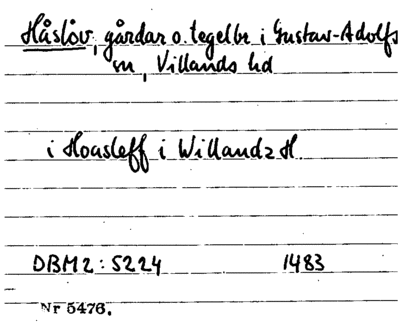 Håslöv, gårdar o. tegelbr i Gustav-Adolfs
sn, Villands hd
i Hoasleff i Willandz H.
DBM 2: 5224 1483
Nr 5476.